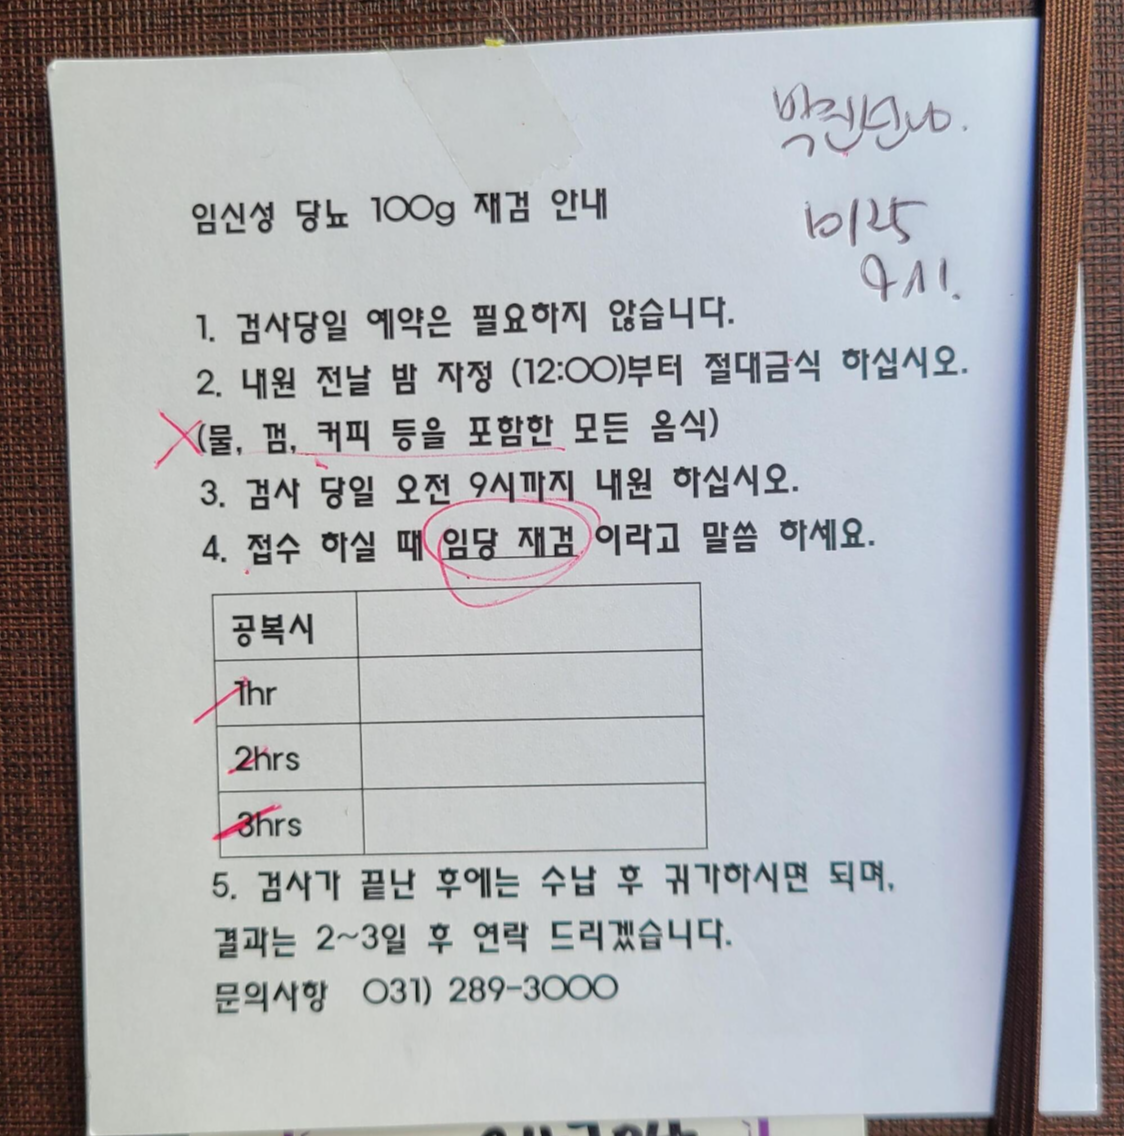 10/25
9시.
임신성 당뇨 100g 재검 안내
1. 검사당일 예약은 필요하지 않습니다.
2. 내원 전날 밤 자정 (12:00)부터 절대금식 하십시오.
(물, 껌, 커피 등을 포함한 모든 음식)
3. 검사 당일 오전 9시까지 내원 하십시오.
4. 접수 하실 때 임당 재검 이라고 말씀 하세요.
공복시
1hr
2hrs
3hrs
5. 검사가 끝난 후에는 수납 후 귀가하시면 되며,
결과는 2~3일 후 연락 드리겠습니다.
문의사항 031) 289-3000